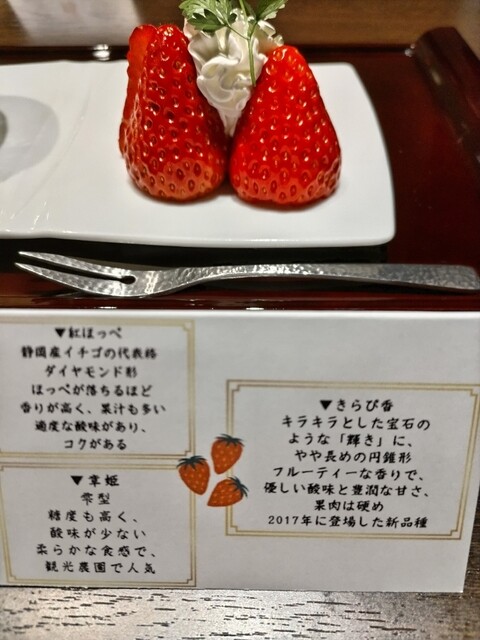 ▼紅ほっぺ
静岡産イチゴの代表格
ダイヤモンド形
ほっぺが落ちるほど
香りが高く、果汁も多い
適度な酸味があり、
コクがある
▼章姫
雫型
糖度も高く、
酸味が少ない
柔らかな食感で、
観光農園で人気
▼きらぴ香
キラキラとした宝石の
ような「輝き」に、
やや長めの円錐形
フルーティーな香りで、
優しい酸味と豊潤な甘さ、
果肉は硬め
2017年に登場した新品種